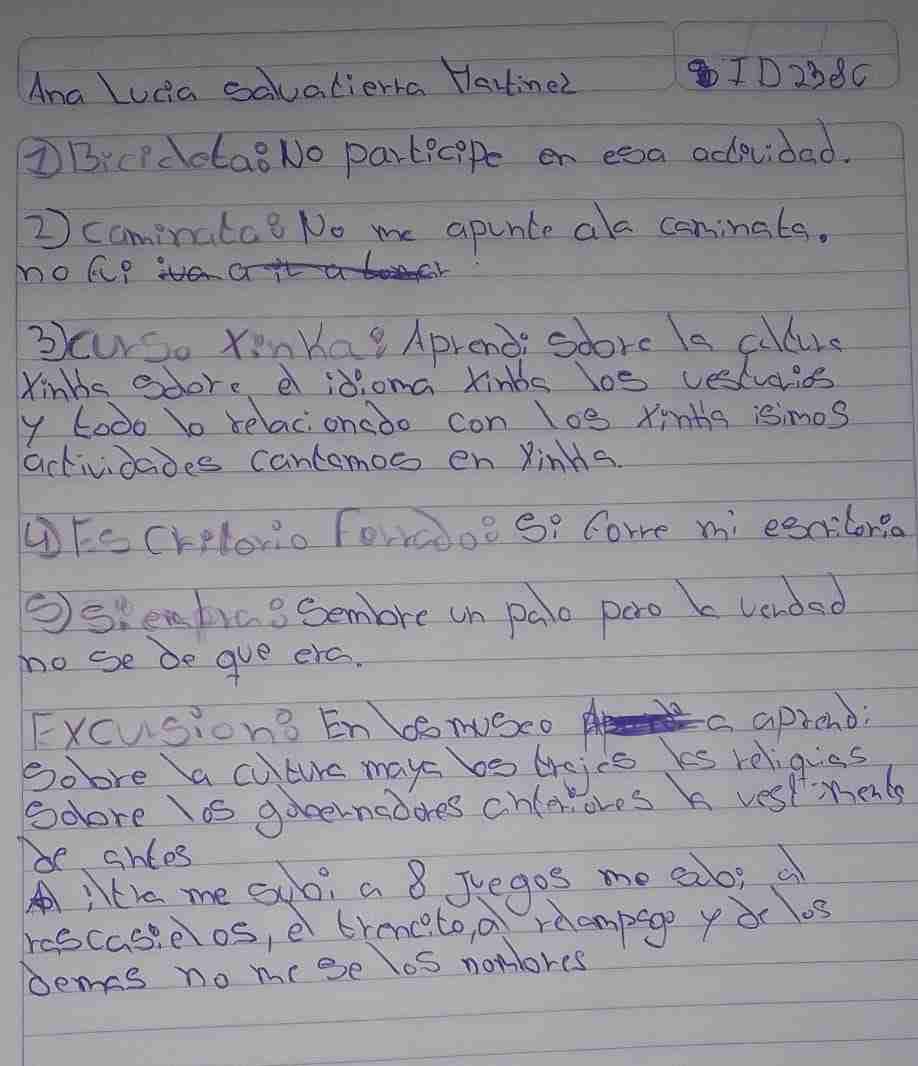 Ana Lucia Salvatierra Martinez ID238C
1) Bicicleta: No participe en esa actividad.
2) Caminata: No me apunte ala caminata.
no fui
3) Curso Xinka: Aprendi sobre la cultura
xinka sobre el idioma xinka los vestuarios
y todo lo relacionado con los xinka isimos
actividades cantamos en xinka.
4) Escritorio Forrado: Si forre mi escritorio
5) Siembra: Sembre un palo pero la verdad
no se de que era.
Excusion: En los museo aprendi
sobre la cultura maya los trajes las reliquias
sobre los gobernadores anteriores la vestimenta
de antes
iltra me subi a 8 juegos me subi al
rascasielos, el trencito, al relampago y de los
demas no me se los nombres